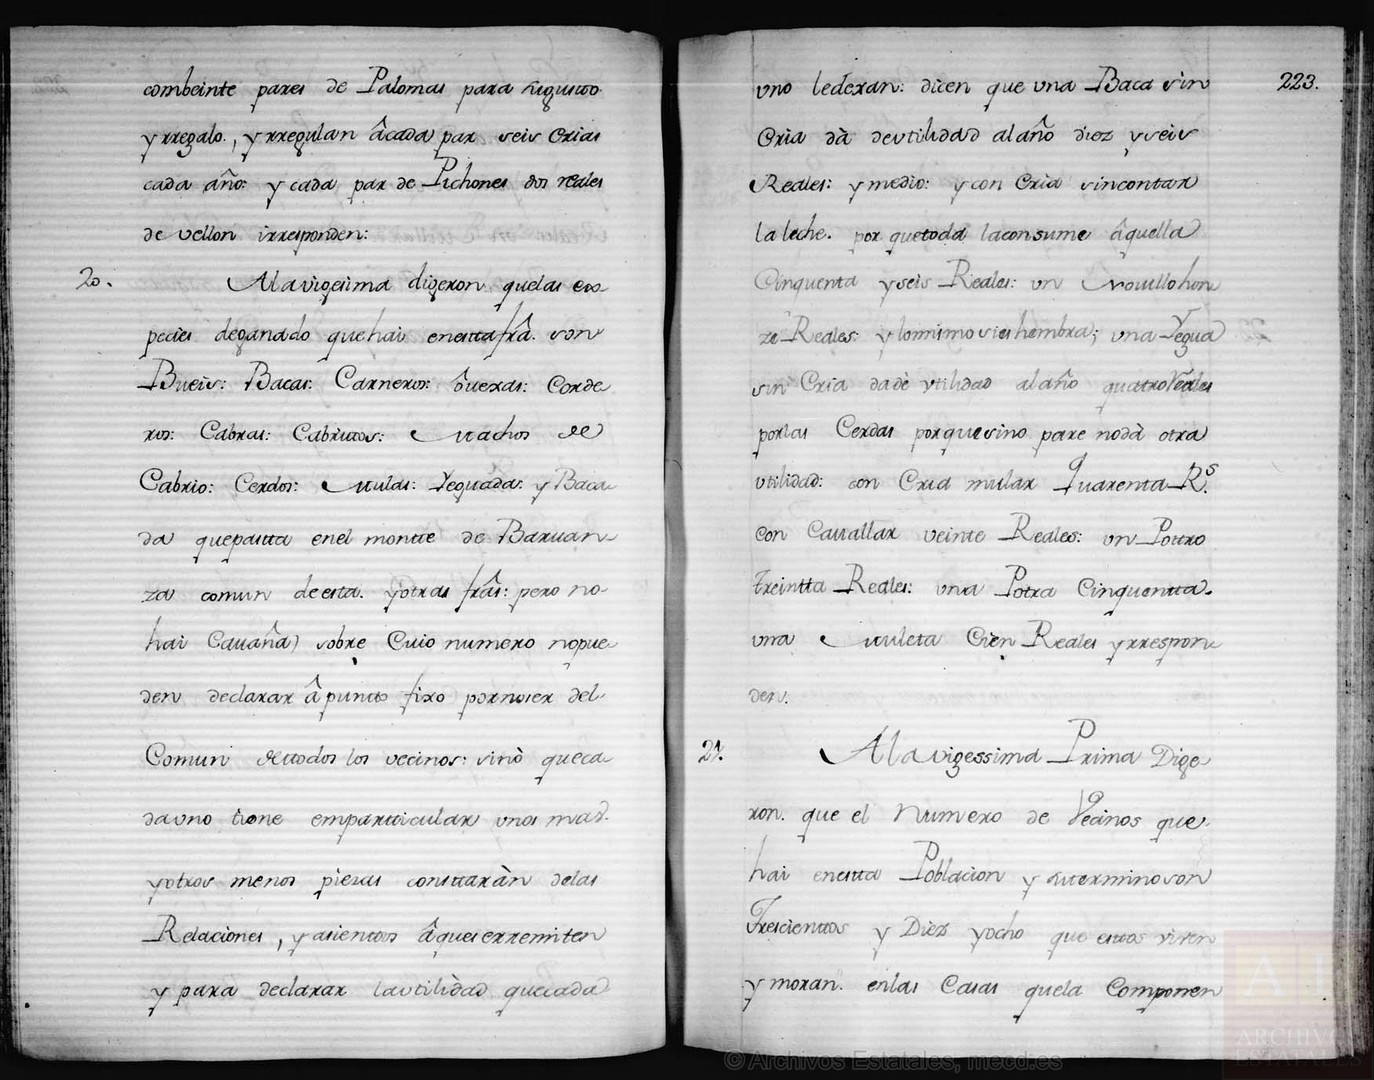 combeinte pares de Palomas para su gusto
y rregalo, y rregulan âcada par seis Crias
cada año: y cada par de Pichones dos reales
de vellon irresponden:
20. Ala vigesima digeron quelas es
pecies deganado quehai enestta frâ. son
Bueis: Bacas: Carneros: ôuexas: Corde
ros: Cabras: Cabrittos: Machos de
Cabrio: Cerdos: Mulas: Yeguada: y Baca
da quepastta enel montte de Baruan
za comun deesta. yotras frâs: pero no-
hai Cauaña) sobre Cuio numero nopue
den declarar âpuntto fixo pornoser del
Comun dettodos los vecinos: sinò queca
dauno tiene emparticular unos mas.
yotros menos piezas consttaràn delas
Relaciones, y asienttos âqueserremiten
y para declarar lautilidad quecada
223.
uno ledexan: dicen que una Baca sin
Cria dà deutilidad al año diez yseis
Reales: ymedio: ycon Cria sincontar
la leche. por quetoda laconsume âquella
Cinquenta yseis Reales: un Nouillo hon
ze Reales: ylomismo sies hembra; una Yegua
sin Cria dadè utilidad al año quattro Reales
porlas Cerdas porquesino pare nodà otra
utilidad: con Cria mular Quarenta Rs.
con Cauallar veinte Reales: un Pottro
treintta Reales: una Potra Cinquentta.
una Muleta Cien Reales yrrespon
den.
21. Ala vigessima Prima Dige
ron. que el Numero de Vecinos que
hai enestta Poblacion y sutermino son
Trescienttos y Diez yocho que esttos viven
y moran. enlas Casas quela Componen
© Archivos Estatales, mecd.es
AE
ARCHIVOS
ESTATALES